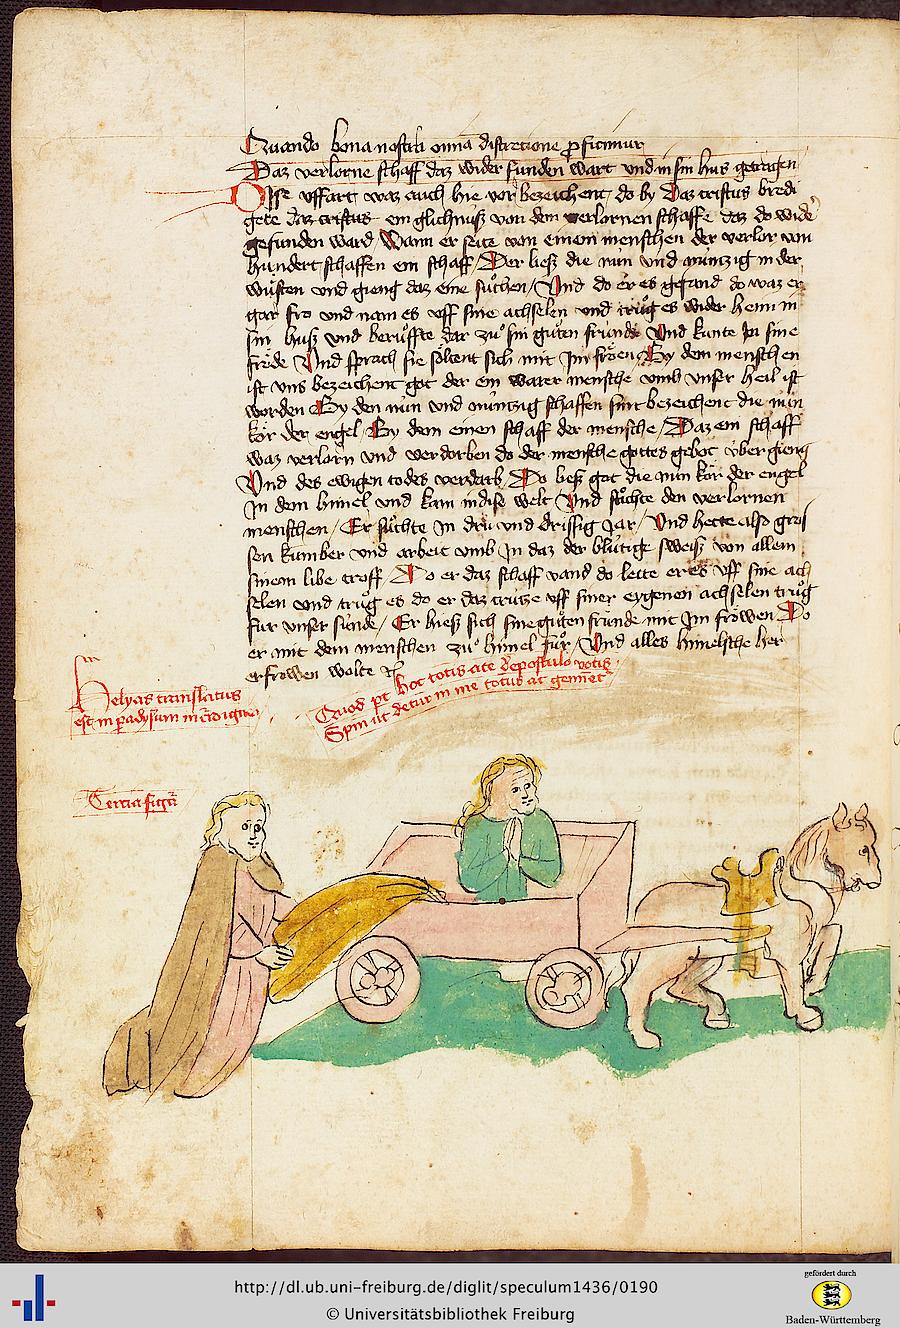 Quando bona nostra cum discretione perficimur
Daz verlorne schaff daz wider funden wart vnd in sin hus getragen
Disse vffart waz auch hie vor bezeichent do by Daz cristus bredi
gete daz cristus ein glichnusz von dem verlornen schaffe daz do wider
gefunden ward Wann er seite von einem menschen der verlor von
hundert schaffen ein schaff Der liesz die nun vnd nuntzig in der
wusten vnd gieng daz eine suchen Vnd do er es gefand do waz er
gar fro vnd nam es vff sine achselen vnd trug es wider heim in
sin husz vnd beruffte dar zu sin guten frunde Vnd kunte In sine
frode Vnd sprach sie soltent sich mit Im froen By dem menschen
ist vns bezeichent got der ein warer mensche vmb vnser heil ist
worden By den nun vnd nuntzig schaffen sint bezeichent die nun
kor der engel By dem einen schaff der mensche Daz ein schaff
waz verlorn vnd verdorben do der mensche gottes gebot vber gieng
Vnd des ewigen todes verdarb Do liesz got die nun kor der engel
In dem himel vnd kam in dise welt Vnd suchte den verlornen
menschen Er suchte In dru vnd drissig Jar Vnd hette also gros
sen kumber vnd arbeit vmb In daz der blutige sweisz von allem
sinem libe troff Do er daz schaff vand do leite er es vff sine ach
selen vnd trug es do er daz crutze vff siner eygenen achselen trug
fur vnser sunde Er hiesz sich sine guten frunde mit Im frowen Do
er mit dem menschen zu himel fur Vnd alles himelsche her
erfrowen wolte
Quod hoc totis a te depostulo votis
Spiritus ut detur in me totus
Helyas translatus
est in paradysum in
Tercia figura
http://dl.ub.uni-freiburg.de/diglit/speculum1436/0190
© Universitätsbibliothek Freiburg
gefördert durch
Baden-Württemberg